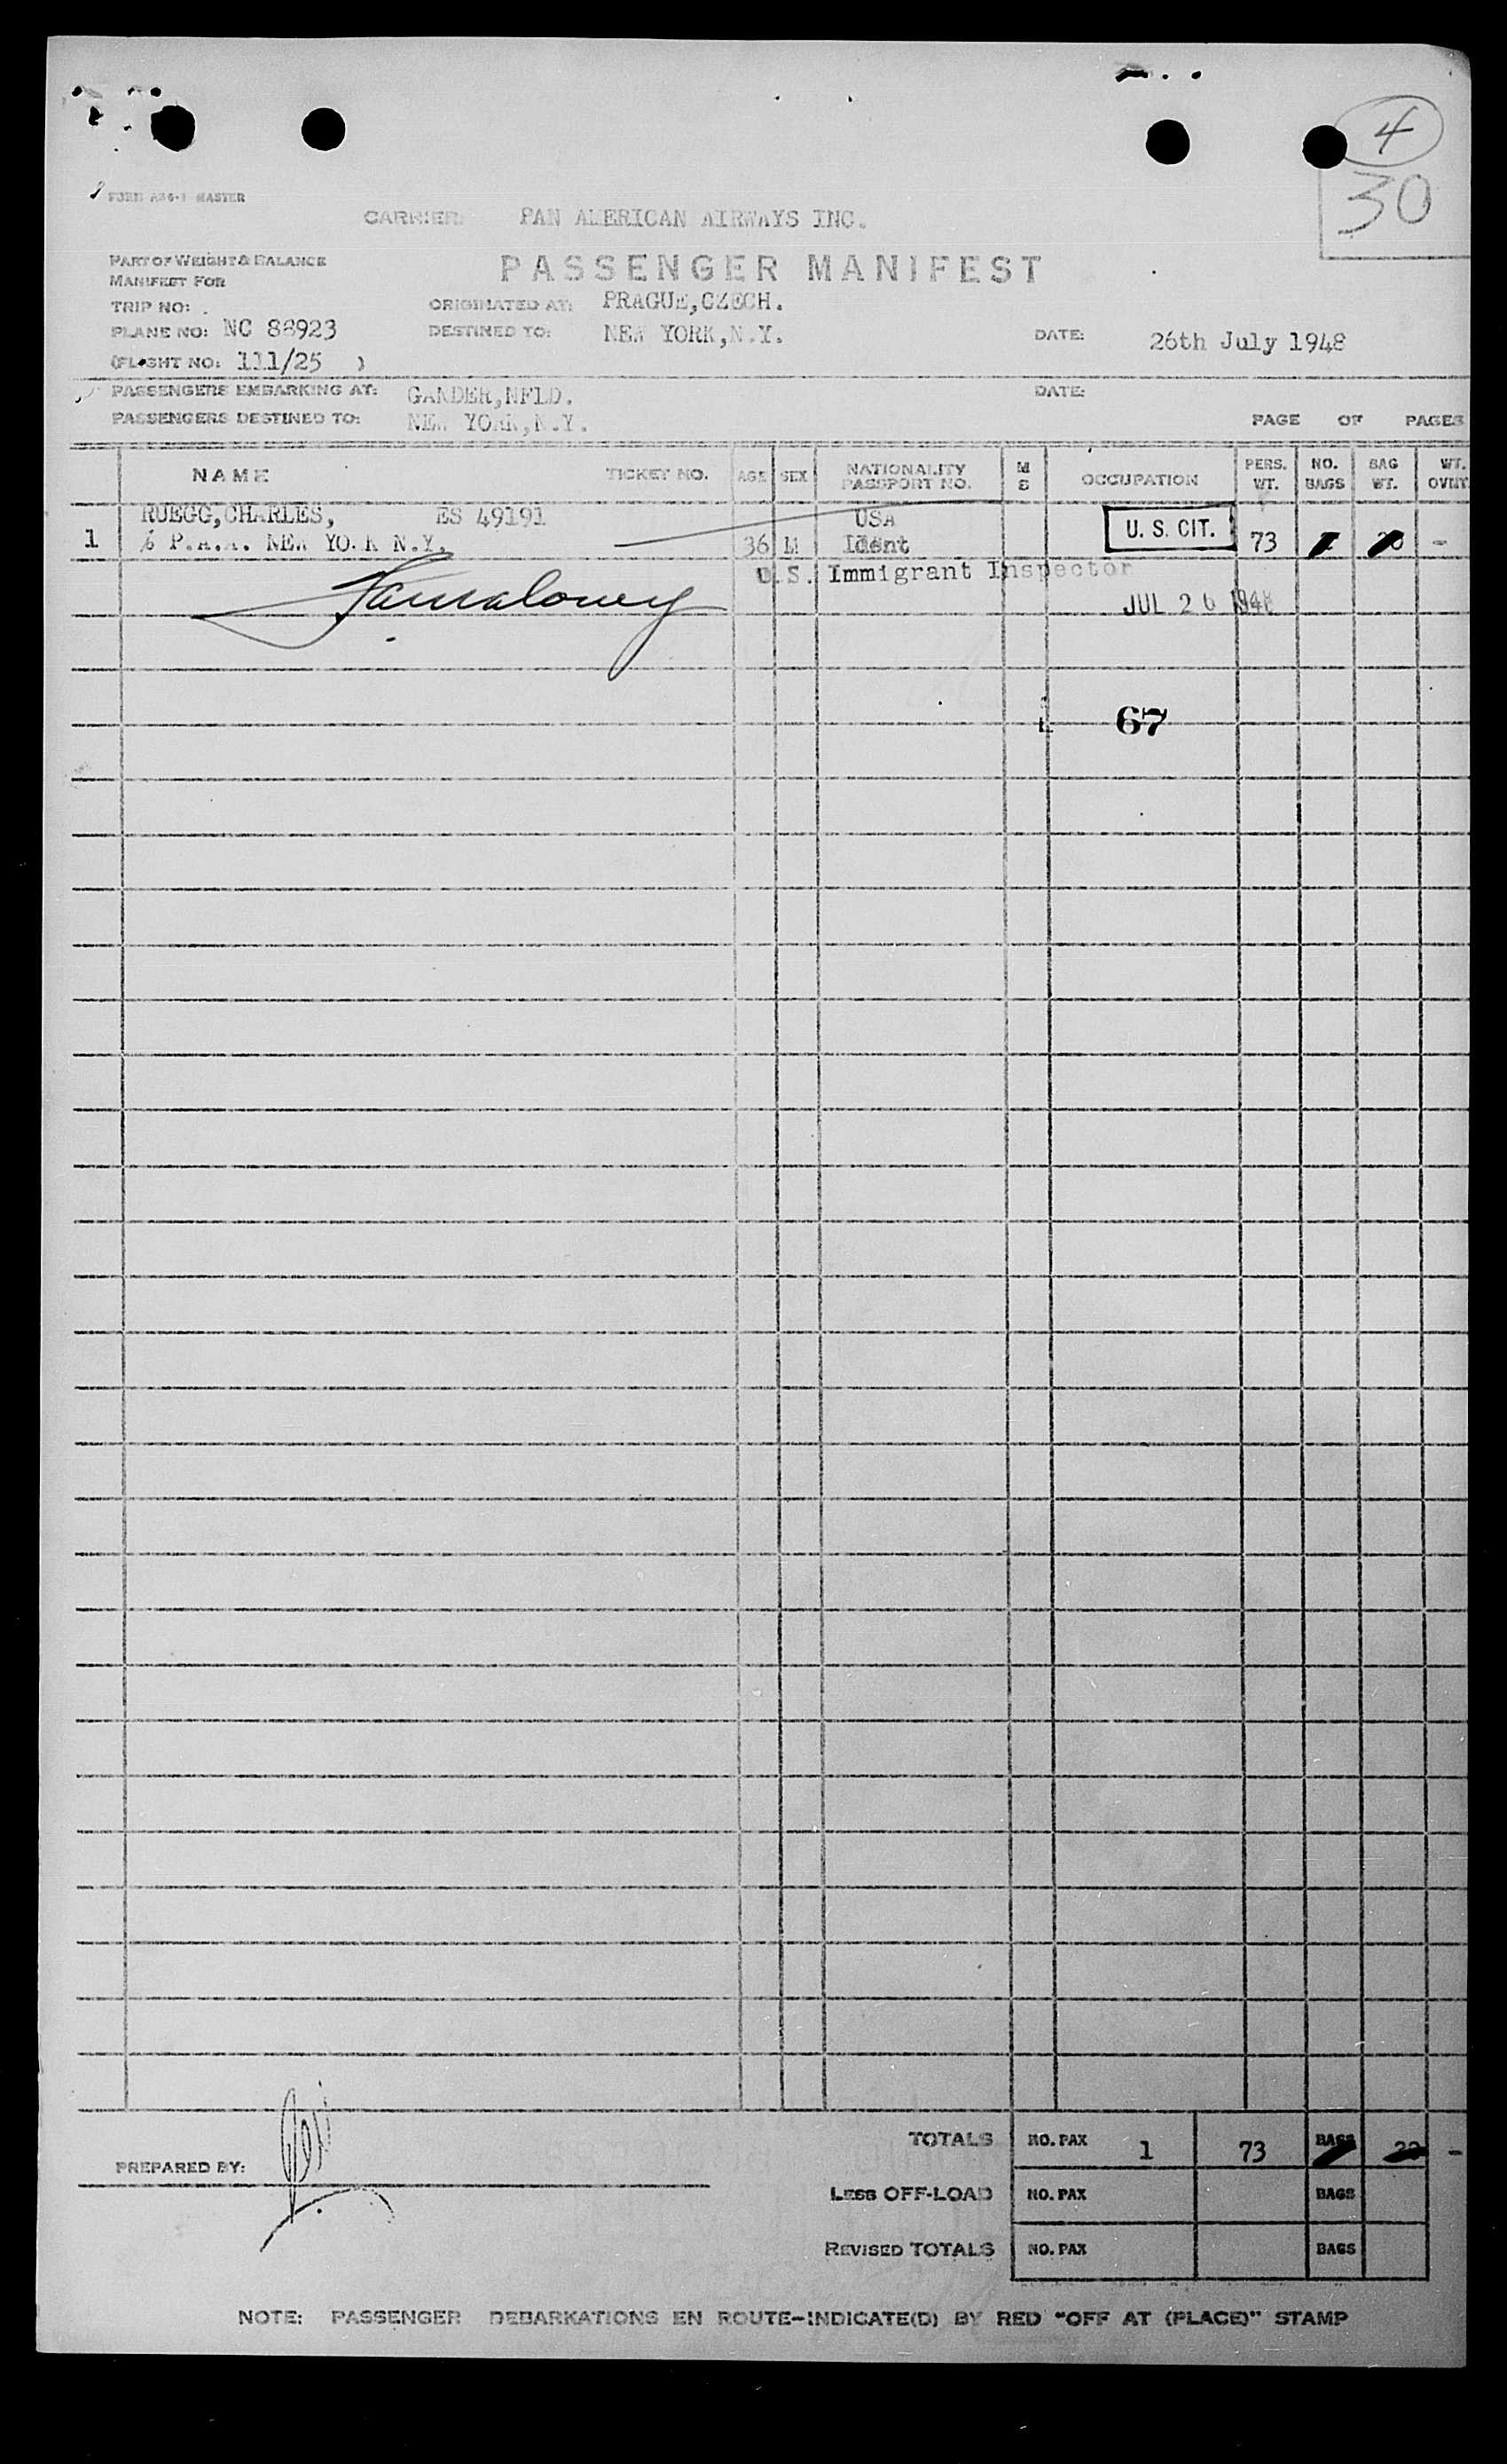 4
30
FORM A86-1 MASTER
CARRIER: PAN AMERICAN AIRWAYS INC.
PART OF WEIGHT & BALANCE
MANIFEST FOR
PASSENGER MANIFEST
TRIP NO: ORIGINATED AT: PRAGUE,CZECH.
PLANE NO: NC 88923 DESTINED TO: NEW YORK,N.Y. DATE: 26th July 1948
(FLIGHT NO: 111/25 )
PASSENGERS EMBARKING AT: GANDER,NFLD. DATE:
PASSENGERS DESTINED TO: NEW YORK,N.Y. PAGE OF PAGES
NAME TICKET NO. AGE SEX NATIONALITY PASSPORT NO. M S OCCUPATION PERS. WT. NO. BAGS BAG WT. WT. OVWT
RUEGG,CHARLES, ES 49191 USA
1 % P.A.A. NEW YORK N.Y. 36 M Ident U. S. CIT. 73 -
U.S. Immigrant Inspector
JUL 26 1948
67
TOTALS NO. PAX 1 73 BAGS -
PREPARED BY:
LESS OFF-LOAD NO. PAX BAGS
REVISED TOTALS NO. PAX BAGS
NOTE: PASSENGER DEBARKATIONS EN ROUTE-INDICATE(D) BY RED "OFF AT (PLACE)" STAMP